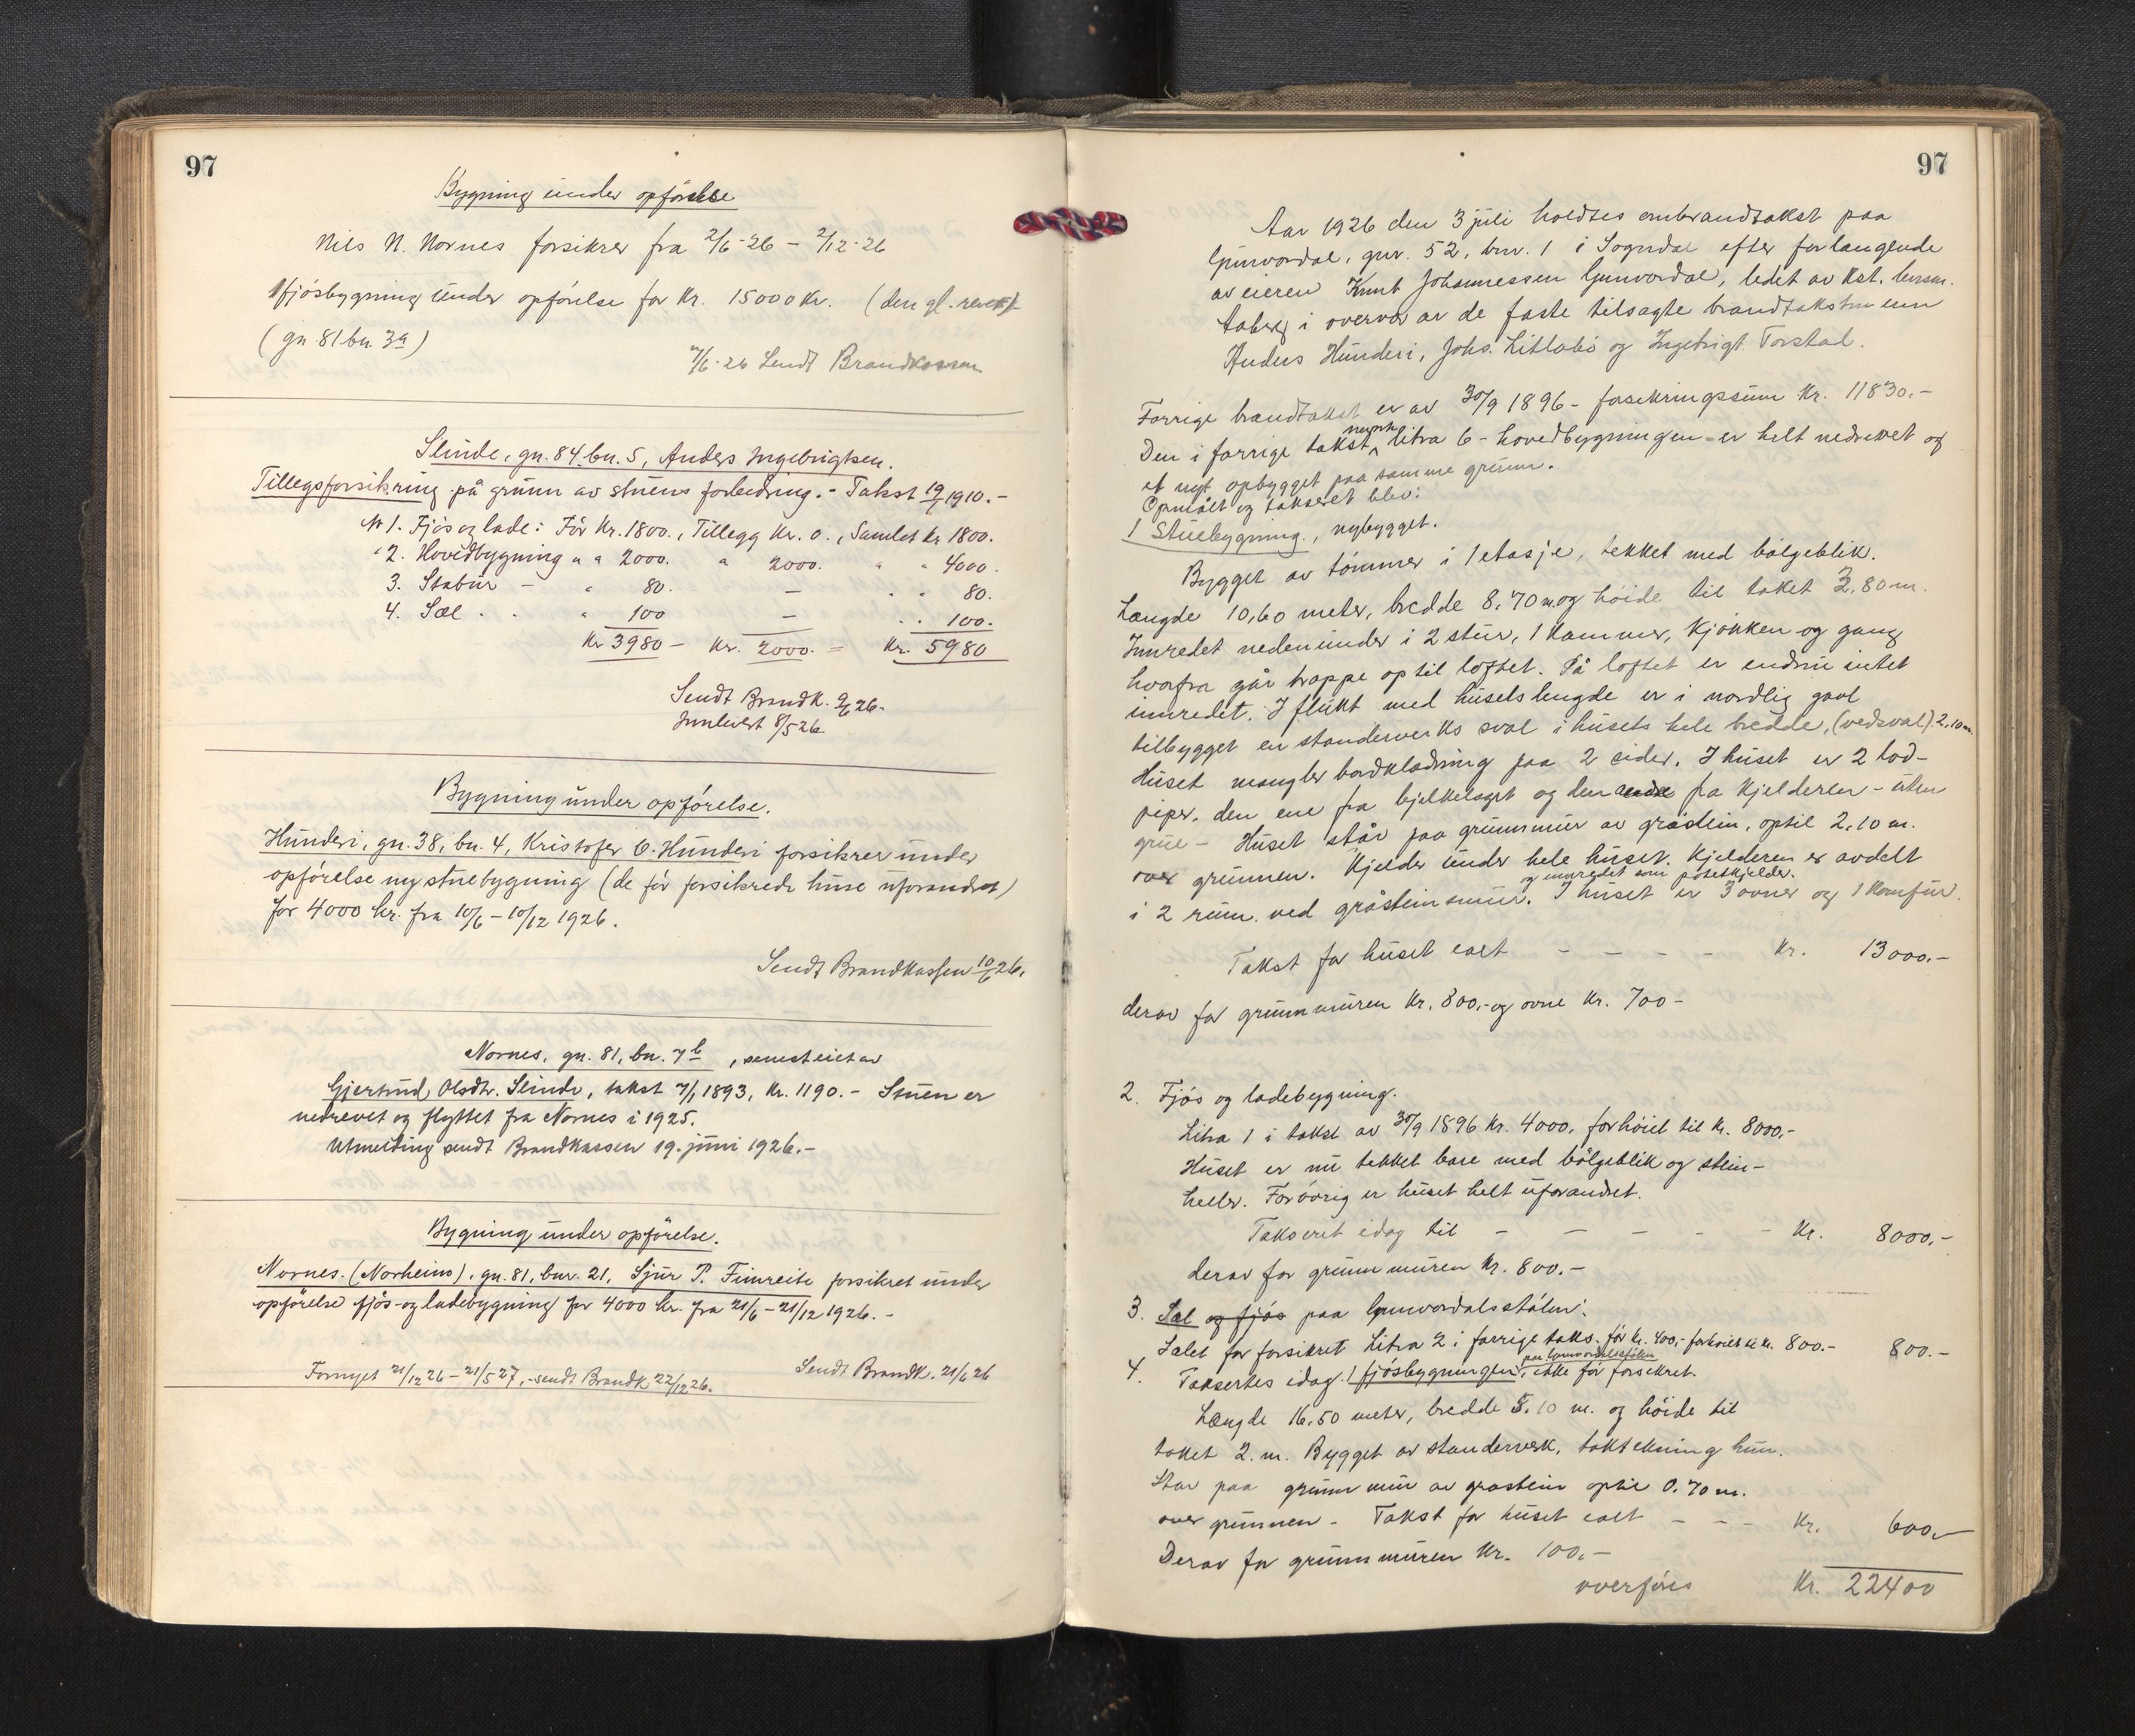 97
Bygning under opförelse
Nils N. Nornes forsikrer fra 2/6-26 - 2/12-26
1 fjösbygning under opförelse for Kr. 15000 Kr. (den gl. revet)
(gn. 81 bn 3a)
7/6-26 Sendt Brandkassen
Slinde, gn. 84, bn. 5, Anders Ingebrigtsen.
Tillegsforsikring på grunn av stuens forbedring. - Takst 19/7 1910. -
№ 1. Fjös og lade: För Kr. 1800., Tillegg Kr. 0., Samlet kr 1800.
" 2. Hovedbygning " " 2000. " 2000. " " 4000.
3. Stabur - " 80. - " " 80.
4. Sæl . . " 100 - . . 100.
Kr 3980 - Kr. 2000. = Kr. 5980
Sendt Brandk. 9/6 26.
Innlevert 8/5 26.
Bygning under opförelse.
Hunderi, gn. 38, bn. 4, Kristofer O. Hunderi forsikrer under
opförelse ny stuebygning (de för forsikrede huse uforandret)
for 4000 kr. fra 10/6 - 10/12 1926.
Sendt Brandkassen 10/6 26.
Nornes, gn. 81, bn. 7b, senest eiet av
Gjertrud Olsdtr. Slinde, takst 7/1 1893, Kr. 1190. - Stuen er
nedrevet og flyttet fra Nornes i 1925.
Utmelding sendt Brandkassen 19. juni 1926. -
Bygning under opförelse.
Nornes. (Norheim), gn. 81, bnr. 21, Sjur P. Fimreite forsikret under
opförelse fjös- og ladebygning for 4000 kr. fra 21/6 - 21/12 1926. -
Sendt Brandk. 21/6 26
Fornyet 21/12 26 - 21/5 27, - sendt Brandk 22/12 26.
97
Aar 1926 den 3 juli holdtes ombrandtakst paa
Gunvordal, gnr. 52, bnr. 1 i Sogndal efter forlangende
av eieren Knut Johannessen Gunvordal, ledet av kst. lensm.
Aaberg i overvær av de faste tilsagte brandtakstmenn
Anders Hunderi, Johs. Litlabö og Ingebrigt Torstad.
Forrige brandtakst er av 30/9 1896 - forsikringssum Kr. 11830.-
Den i forrige takst nevnte litra 6 - hovedbygningen - er helt nedrevet og
et nyt opbygget paa samme grunn.
Opmålt og takseret blev:
1 Stuebygning, nybygget.
Bygget av tömmer i 1 etasje, tekket med bölgeblik.
Længde 10,60 meter, bredde 8,70 m. og höide til taket 3,80 m.
Innredet nedenunder i 2 stur, 1 kammer, kjökken og gang
hvorfra går trappe op til loftet. På loftet er endnu intet
innredet. I flukt med husets lengde er i nordlig gavl
tilbygget en standerverks sval i husets hele bredde, (vedsval) 2,10 m.
Huset mangler bordklædning paa 2 sider. I huset er 2 lod-
piper, den ene fra bjelkelaget og den andre fra kjelderen - uten
grue - Huset står paa grunnmur av gråstein, optil 2,10 m.
over grunnen. Kjelder under hele huset. Kjelderen er avdelt
i 2 rum ved gråsteinsmur. og innredet som potetkjelder. I huset er 3 ovner og 1 komfur.
Takst for huset ialt - - - - - Kr. 13000.-
derav for grunnmuren Kr. 800,- og ovne Kr. 700 -
2. Fjös og ladebygning.
Litra 1 i takst av 30/9 1896 Kr. 4000, forhöiet til kr. 8000,-
Huset er nu tekket bare med bölgeblik og stein-
heller. Forövrig er huset helt uforandret.
Takseret idag til - - - - - Kr. 8000,-
derav for grunnmuren Kr. 800.-
3. Sæl og fjös paa Gunvordalsstölen:
Sælet for forsikret Litra 2 i forrige takst. för kr. 400,- forhöiet til kr. 800.- 800.-
4. Taksertes idag 1 fjösbygningen paa Gunvordalsstölen, ikke för forsikret.
Længde 16,50 meter, bredde 5.10 m. og höide til
taket 2. m. Bygget av standerverk, taktekning hun.
Star paa grunnmur av grastein optil 0.70 m.
over grunnen - Takst for huset ialt - - - Kr. 600,-
Derav for grunnmuren Kr. 100.-
overföres Kr. 22400